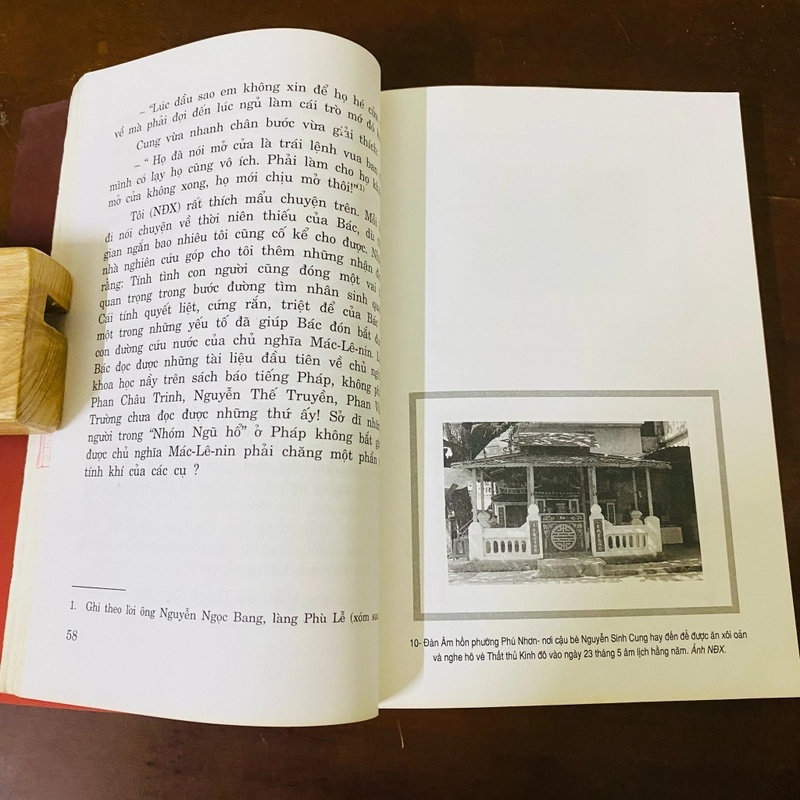 – "Lúc đầu sao em không xin để họ hé cửa
về mà phải đợi đến lúc ngủ làm cái trò mớ đó
Cung vừa nhanh chân bước vừa giải thích:
– " Họ đã nói mở cửa là trái lệnh vua ban
mình có lạy họ cũng vô ích. Phải làm cho họ
mở cửa không xong, họ mới chịu mở thôi!"(1)
Tôi (NĐX) rất thích mẩu chuyện trên.
đi nói chuyện về thời niên thiếu của Bác, dù
gian ngắn bao nhiêu tôi cũng cố kể cho được.
nhà nghiên cứu góp cho tôi thêm những nhận
rằng: Tính tình con người cũng đóng một vai
quan trọng trong bước đường tìm nhân sinh
Cái tính quyết liệt, cứng rắn, triệt để của Bác
một trong những yếu tố đã giúp Bác đón bắt
con đường cứu nước của chủ nghĩa Mác-Lê-nin.
Bác đọc được những tài liệu đầu tiên về chủ
khoa học nầy trên sách báo tiếng Pháp, không
Phan Châu Trinh, Nguyễn Thế Truyền, Phan
Trường chưa đọc được những thứ ấy! Sở dĩ
người trong "Nhóm Ngũ hổ" ở Pháp không bắt
được chủ nghĩa Mác-Lê-nin phải chăng một phần
tính khí của các cụ ?
1. Ghi theo lời ông Nguyễn Ngọc Bang, làng Phù Lễ (xóm
58
10- Đàn Âm hồn phường Phú Nhơn- nơi cậu bé Nguyễn Sinh Cung hay đến để được ăn xôi oản
và nghe hô vè Thất thủ Kinh đô vào ngày 23 tháng 5 âm lịch hằng năm. Ảnh NĐX.